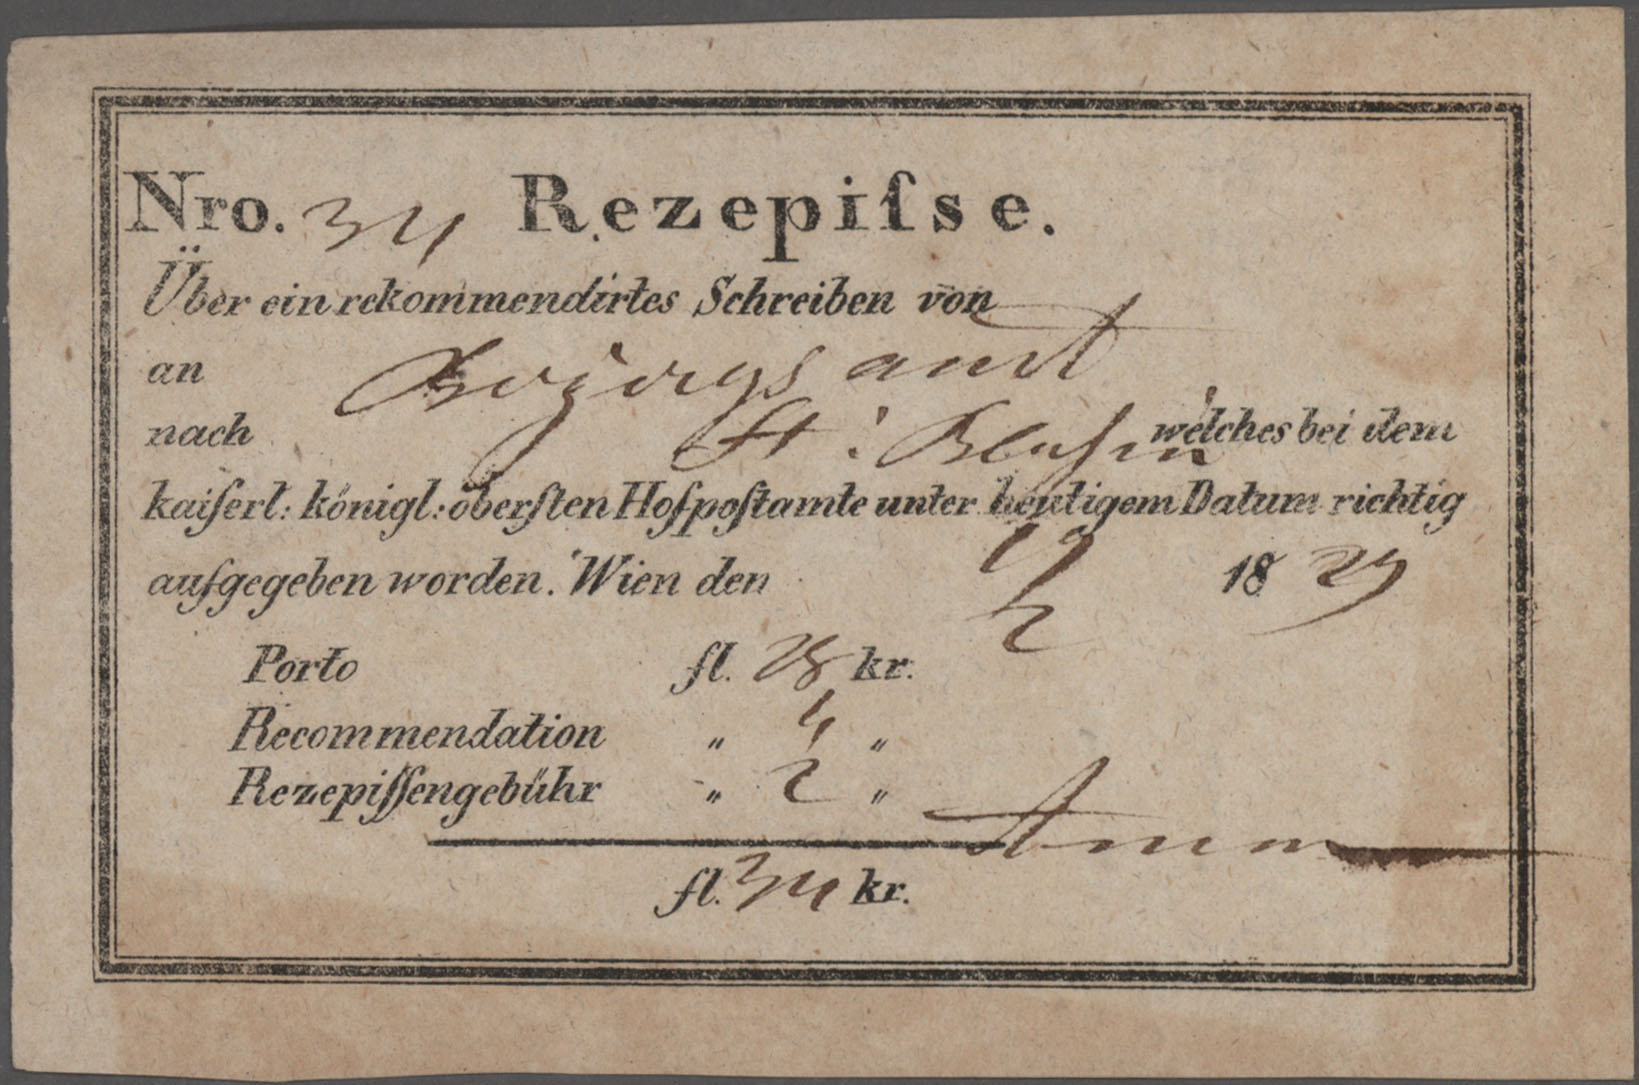 Nro. 34 Rezepiſse.
Über ein rekommendirtes Schreiben von
an Bezirgs amt
nach St: Blasien welches bei dem
kaiſerl: königl: oberſten Hofpoſtamte unter heutigem Datum richtig
aufgegeben worden. Wien den 19/2 1829
Porto fl. 28 kr.
Recommendation " 4 "
Rezepiſſengebühr " 2 "
fl. 34 kr.